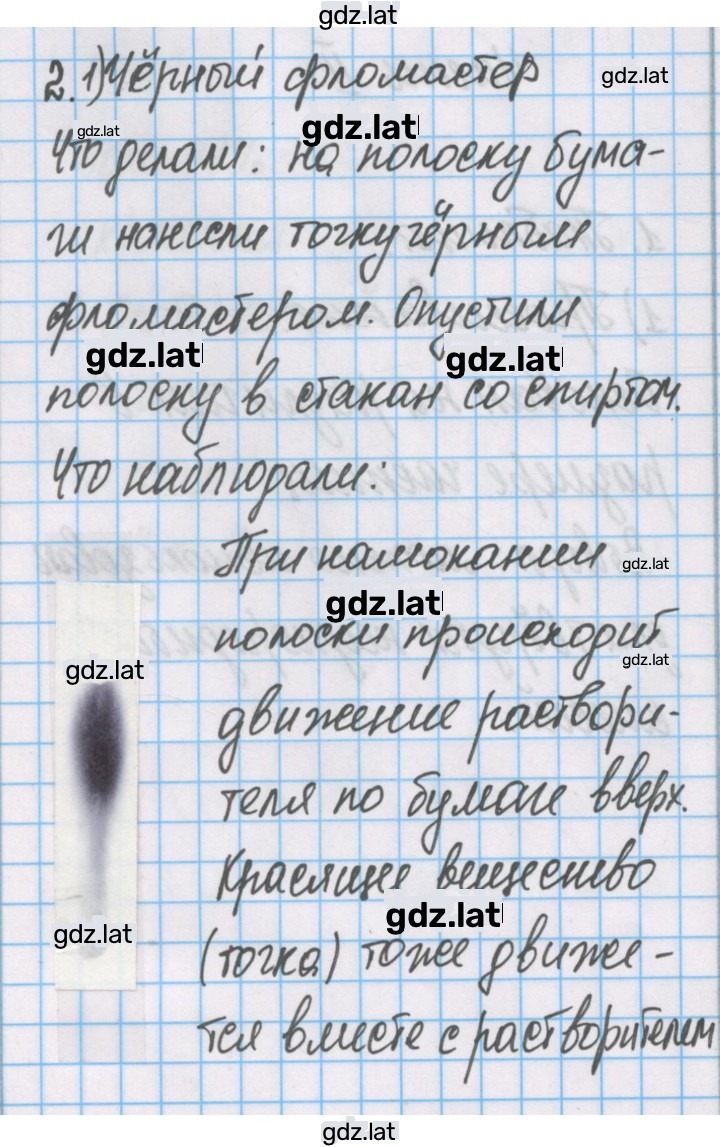 gdz.lat
2. 1) Чёрный фломастер
gdz.lat
gdz.lat
gdz.lat
Что делали: на полоску бума-
ги нанесли точку чёрным
фломастером. Опустили
gdz.lat
gdz.lat
полоску в стакан со спиртом.
Что наблюдали:
При намокании
gdz.lat
gdz.lat
полоски происходит
gdz.lat
gdz.lat
движение раствори-
теля по бумаге вверх.
Красящее вещество
gdz.lat
gdz.lat
(точка) тоже движе-
тся вместе с растворителем
gdz.lat